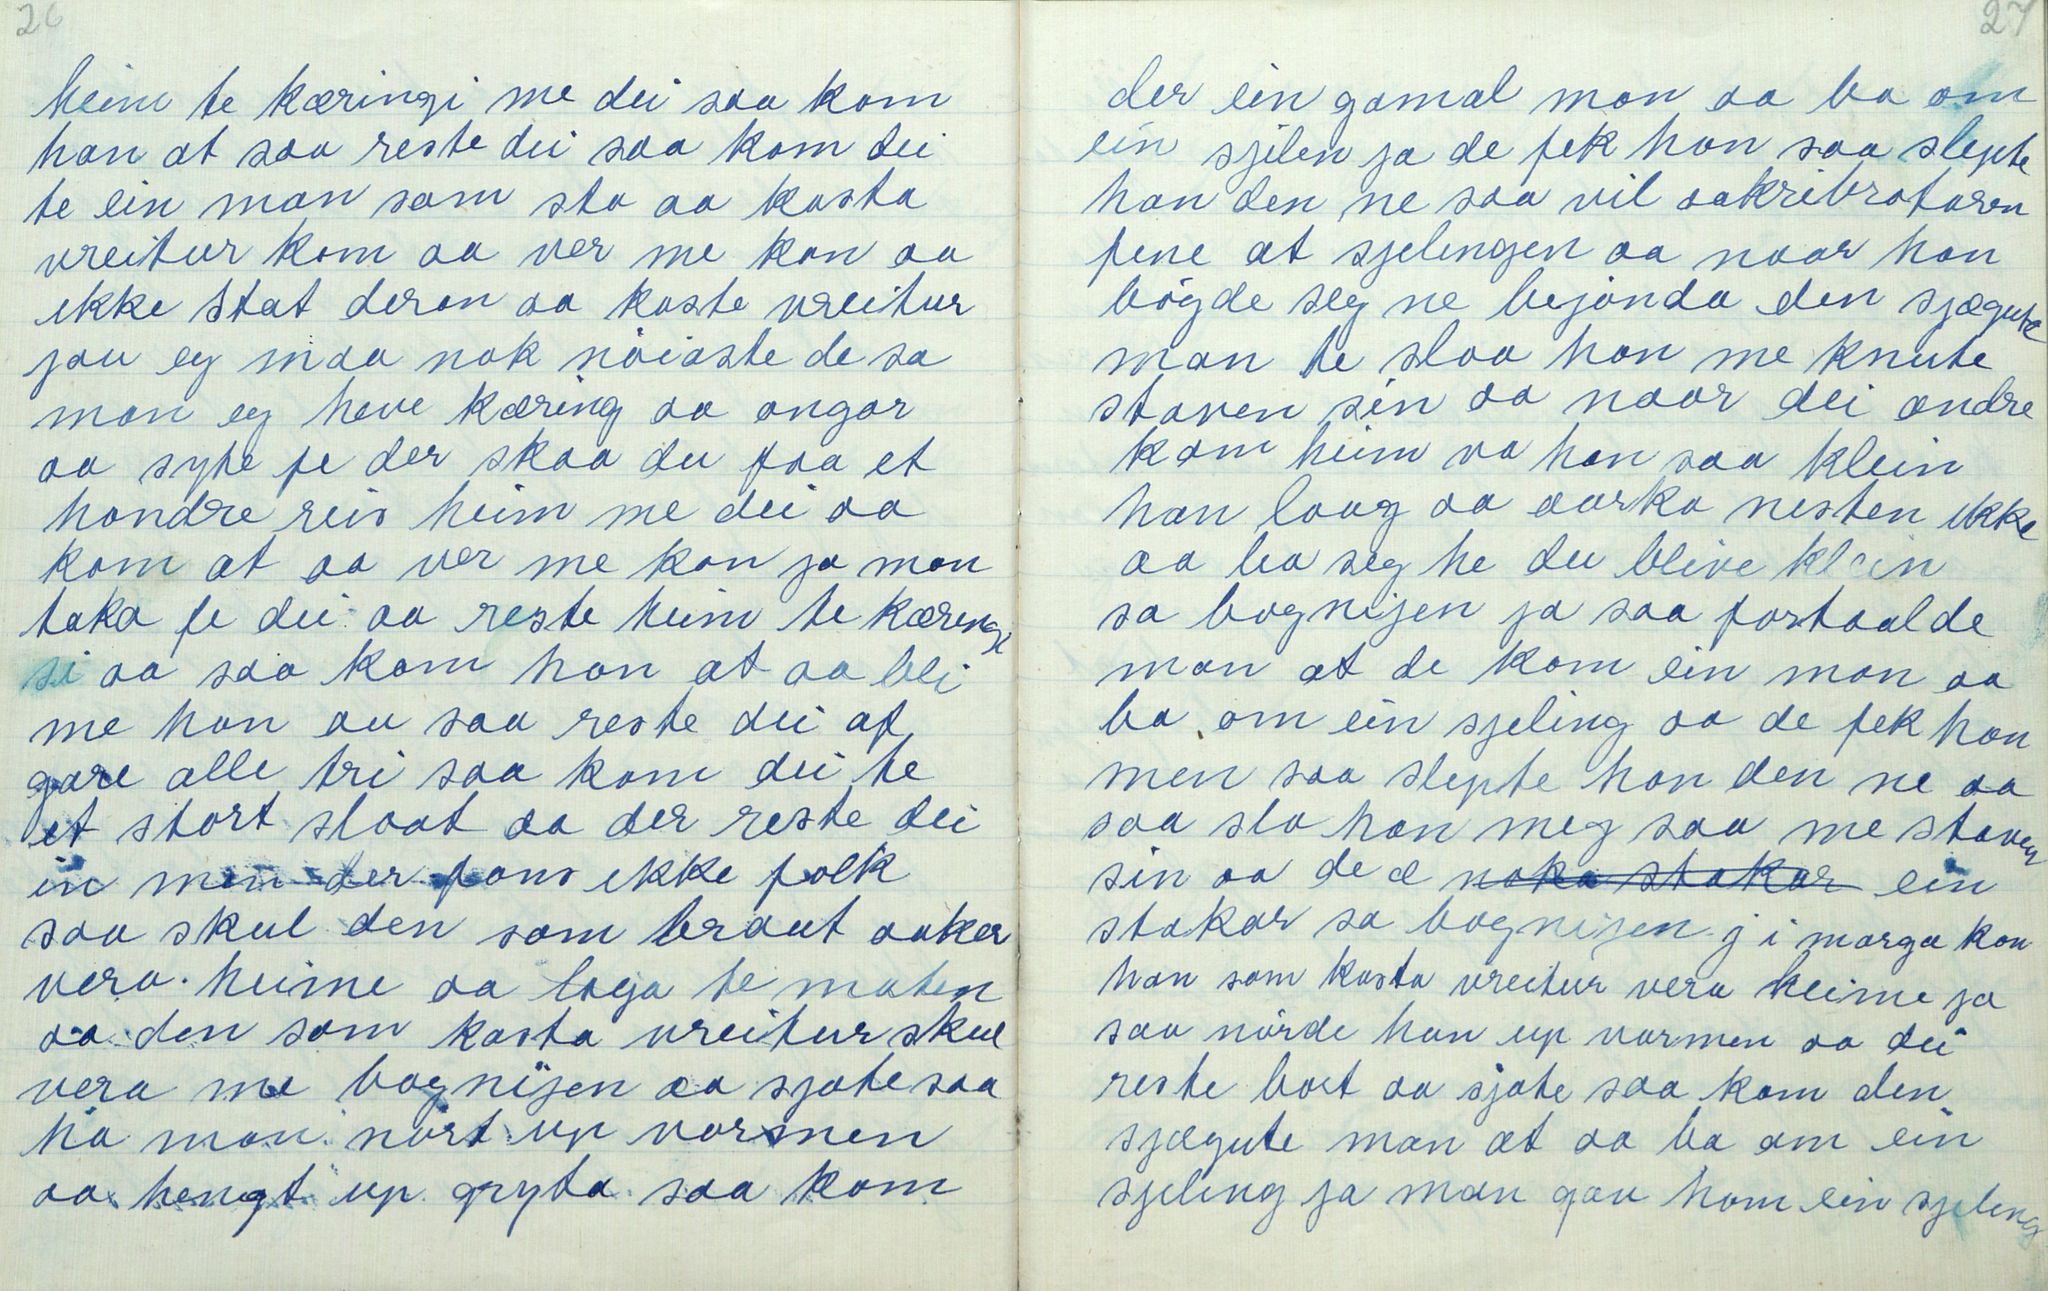 26
heim te kæringi me dei saa kom
han at saa reste dei saa kom dei
te ein man som sto aa kasta
vreitur kom aa ver me kan aa
ikke stat deran aa kaste vreitur
jau eg maa nok nöiaste de sa
man eg heve kæring aa ongar
aa syte fe der skaa du faa et
hondre reis heim me dei aa
kom at aa ver me kan ja man
taka fe dei aa reste heim te kærengi
si aa saa kom han at aa bli
me han au saa reste dei af
gare alle tri saa kom dei te
et stort slaat aa der reste dei
in men der fans ikke folk
saa skul den som braut aaker
vera heime aa laga te maten
aa den som kasta vreitur skul
vera me bognijen aa sjote saa
ha man nört up varmen
aa hengt up gryta saa kom
27
der ein gamal man aa ba om
ein sjilen ja de fek han saa slepte
han den ne saa vil aakribrotaren
fene at sjelingen aa naar han
bögde seg ne bejönda den sjægute
man te slaa han me knute
staven sin aa naar dei andre
kom heim va han saa klein
han laag aa aarka nesten ikke
aa ba seg he du blive klein
sa bognijen ja saa fortaalde
man at de kom ein man aa
ba om ein sjeling aa de fek han
men saa slepte han den ne aa
saa slo han meg saa me staven
sin aa de æ noka stakar ein
stakar sa bognijen j i marga kan
han som kasta vreitur vera heime ja
saa nörde han up varmen aa dei
reste bort aa sjote saa kom den
sjægute man at aa ba om ein
sjeling ja man gav hom ein sjeling